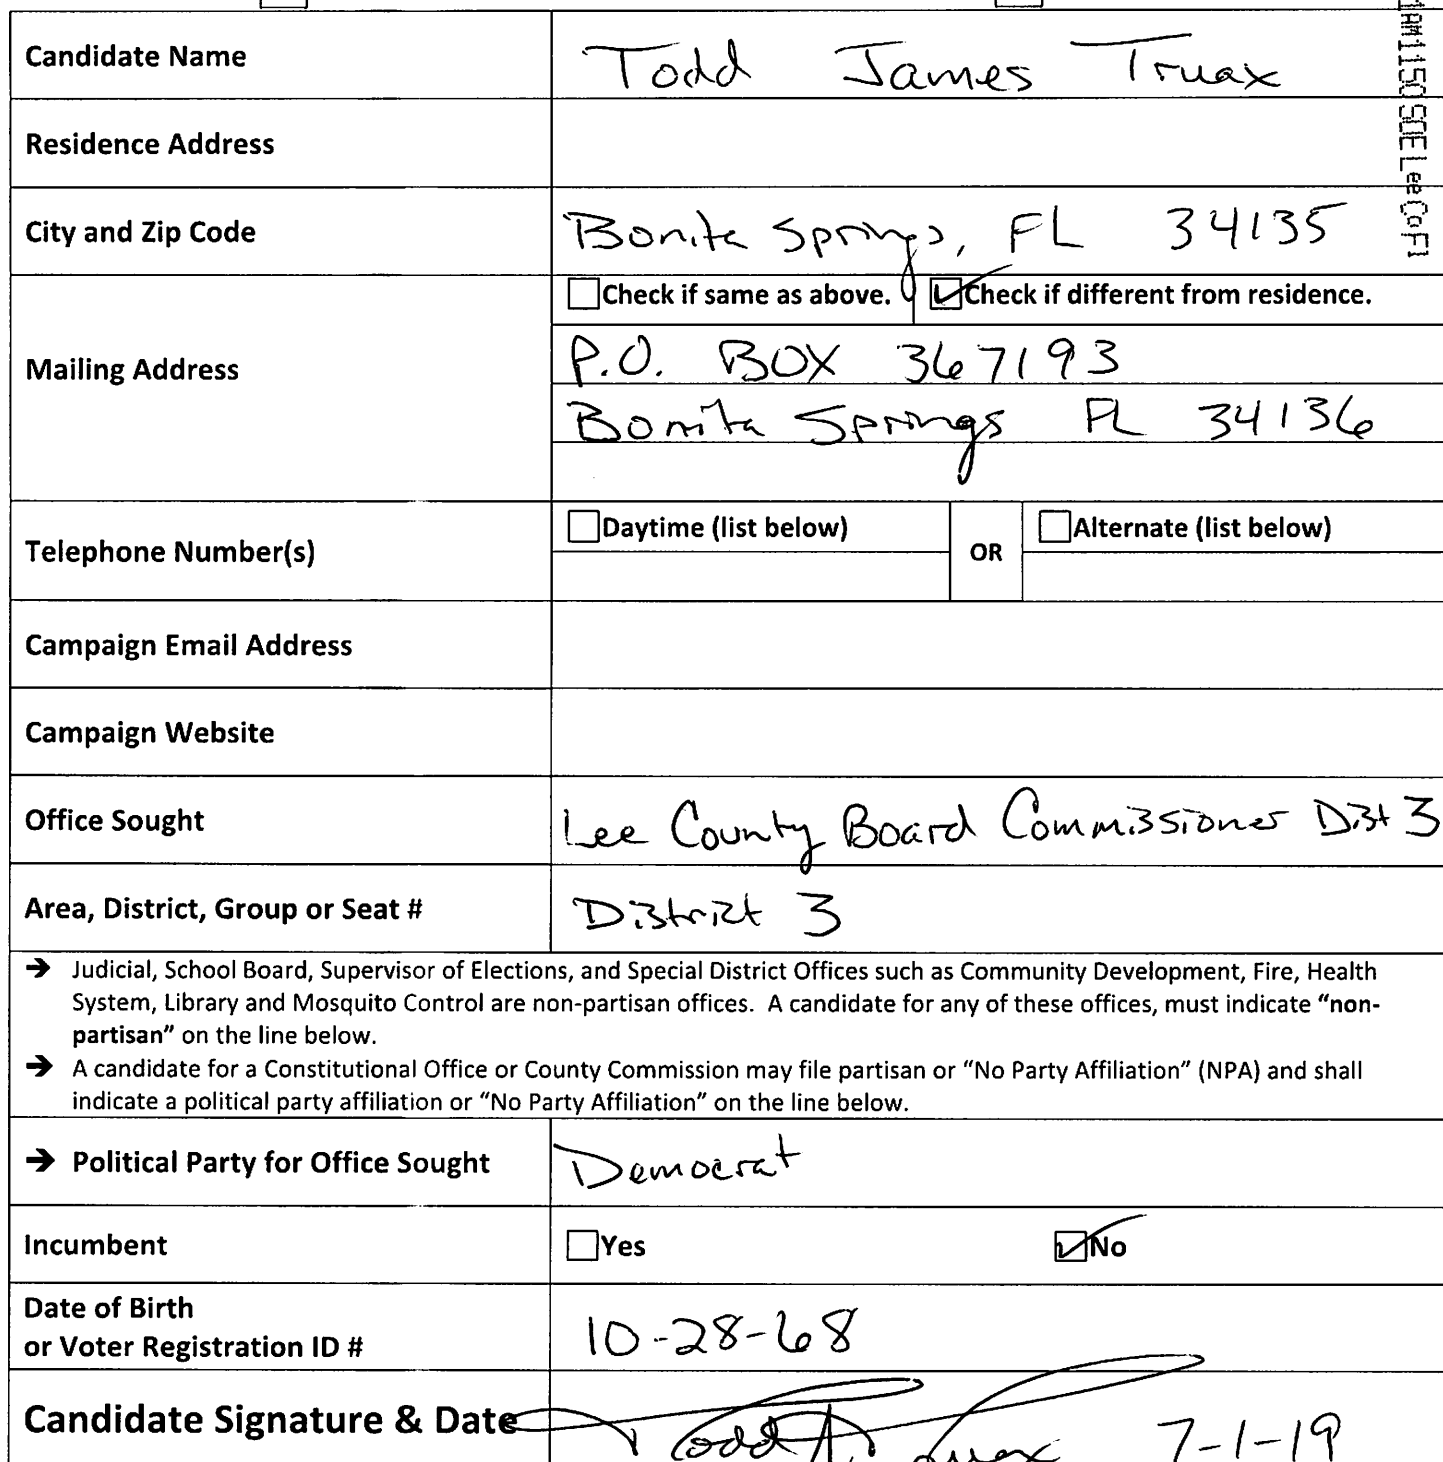 Candidate Name Todd James Truax
Residence Address
City and Zip Code Bonita Springs, FL 34135
Check if same as above. Check if different from residence.
Mailing Address P.O. BOX 367193
Bonita Springs FL 34136
Telephone Number(s) Daytime (list below) OR Alternate (list below)
Campaign Email Address
Campaign Website
Office Sought Lee County Board Commissioner Dist 3
Area, District, Group or Seat # District 3
→ Judicial, School Board, Supervisor of Elections, and Special District Offices such as Community Development, Fire, Health
System, Library and Mosquito Control are non-partisan offices. A candidate for any of these offices, must indicate “non-
partisan” on the line below.
→ A candidate for a Constitutional Office or County Commission may file partisan or “No Party Affiliation” (NPA) and shall
indicate a political party affiliation or “No Party Affiliation” on the line below.
→ Political Party for Office Sought Democrat
Incumbent Yes No
Date of Birth
or Voter Registration ID # 10-28-68
Candidate Signature & Date Todd J. Truax 7-1-19
AM1150 SOE Lee Co Fl